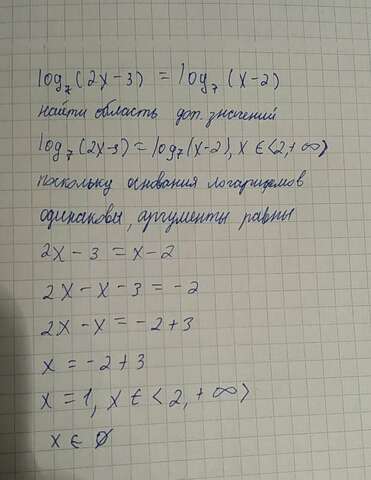 log₇(2x-3) = log₇(x-2)
найти область доп. значений
log₇(2x-3)=log₇(x-2), x ∈ <2,+∞>
поскольку основания логарифмов
одинаковы, аргументы равны
2x - 3 = x - 2
2x - x - 3 = -2
2x - x = -2 + 3
x = -2 + 3
x = 1, x ∈ <2, +∞>
x ∈ ∅